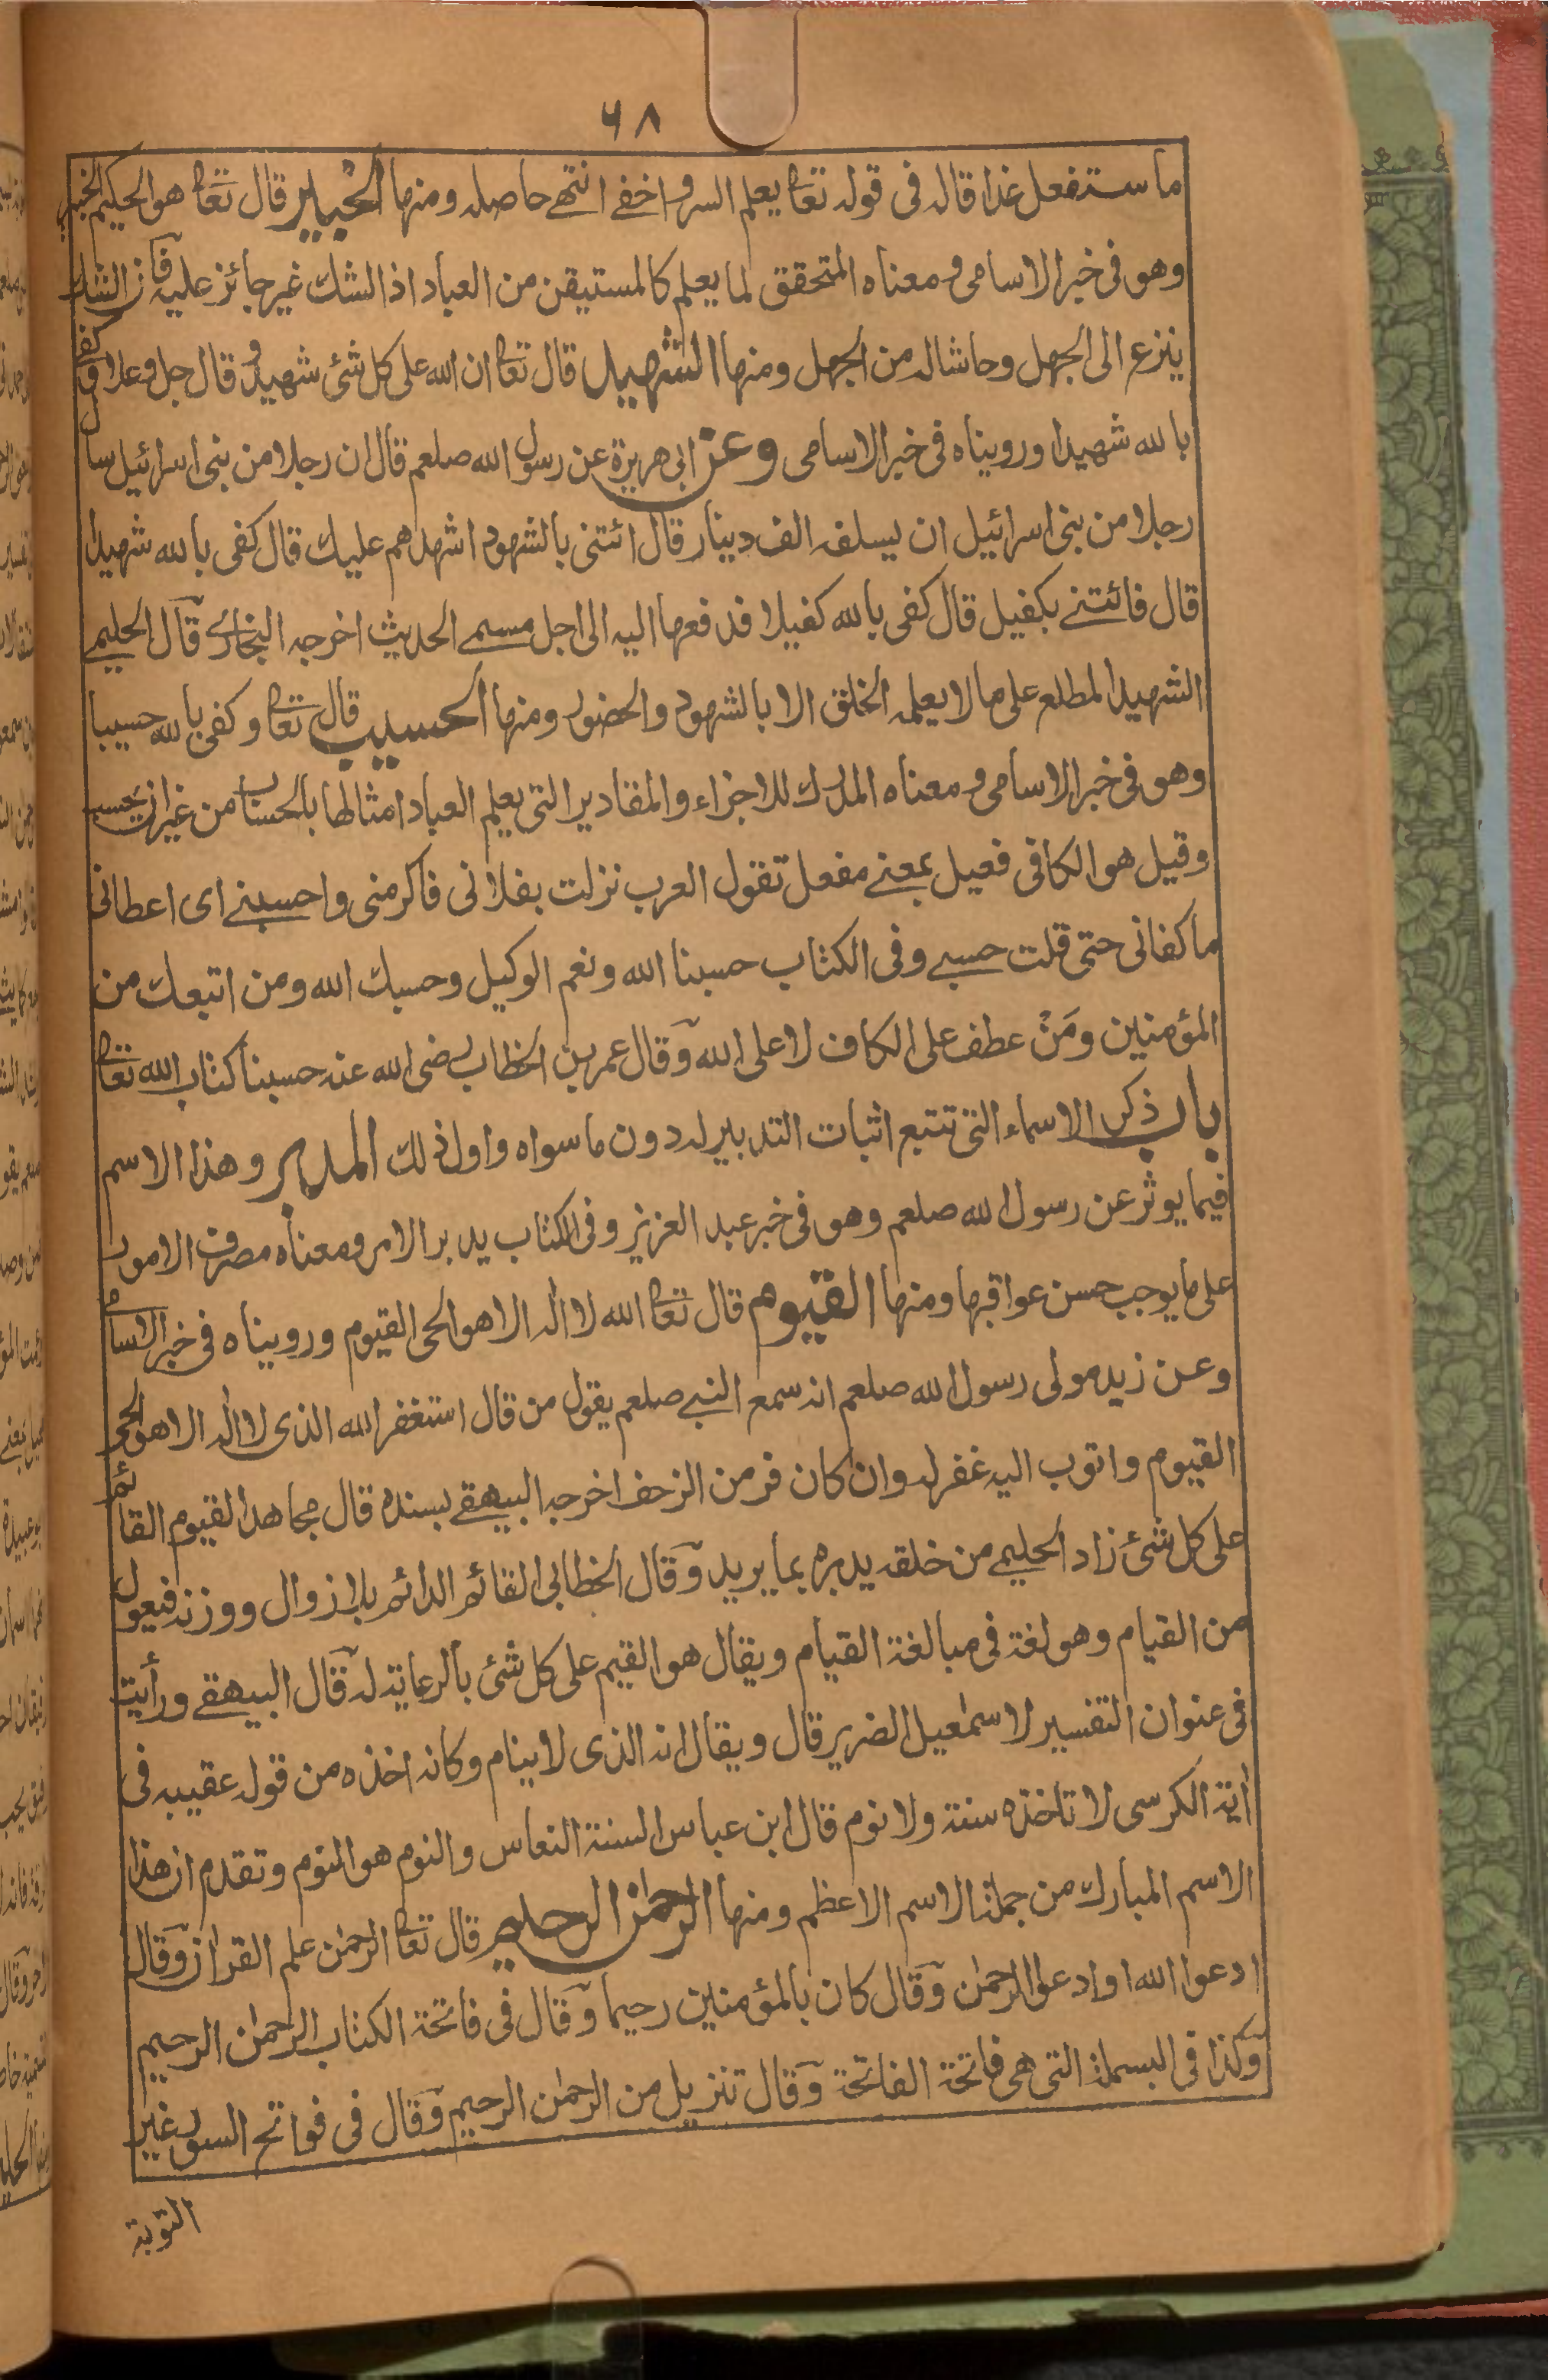 ٦٨
ما ستفعل غدا قاله فى قوله تعا يعلم السر واخفے انتهے حاصله ومنها الخبير قال تعا هو الحكيم الخبير
وهو فى خبر الاسامى ومعناه المتحقق لما يعلم كالمستيقن من العباد اذ الشك غير جائز عليه فان الشك
ينزع الى الجهل وحاشا له من الجهل ومنها الشهيد قال تعا ان الله على كل شئ شهيد وقال جل وعلا وكفى
بالله شهيدا ورويناه فى خبر الاسامى وعن ابى هريرة عن رسول الله صلعم قال ان رجلا من بنى اسرائيل سال
رجلا من بنى اسرائيل ان يسلفه الف دينار قال ائتنى بالشهود اشهدهم عليك قال كفى بالله شهيدا
قال فائتنے بكفيل قال كفى بالله كفيلا فدفعها اليه الى اجل مسمے الحديث اخرجه البخارے قال الحليمے
الشهيد المطلع على ما لا يعلمه الخلق الا بالشهود والحضور ومنها الحسيب قال تعا وكفى بالله حسيبا
وهو فى خبر الاسامى ومعناه المدرك للاجزاء والمقادير التى يعلم العباد امثالها بالحساب من غير ان يحسب
وقيل هو الكافى فعيل بمعنے مفعل تقول العرب نزلت بفلان فاكرمنى واحسبنے اى اعطانى
ما كفانى حتى قلت حسبے وفى الكتاب حسبنا الله ونعم الوكيل وحسبك الله ومن اتبعك من
المؤمنين ومَنْ عطف على الكاف لا على الله وقال عمر بن الخطاب رضى الله عنه حسبنا كتاب الله تعا
باب ذكر الاسماء التى تتبع اثبات التدبير له دون ما سواه واول ذلك المدبر وهذا الاسم
فيما يوثر عن رسول الله صلعم وهو فى خبر عبد العزيز وفى الكتاب يدبر الامر ومعناه مصرف الامور
على ما يوجب حسن عواقبها ومنها القيوم قال تعا الله لا اله الا هو الحى القيوم ورويناه فى خبر الاسامى
وعن زيد مولى رسول الله صلعم انه سمع النبے صلعم يقول من قال استغفر الله الذى لا اله الا هو الحى
القيوم واتوب اليه غفر له وان كان فر من الزحف اخرجه البيهقے بسنده قال مجاهد القيوم القائم
على كل شئ زاد الحليمے من خلقه يدبره بما يريد وقال الخطابى القائم الدائم بلا زوال ووزنه فيعول
من القيام وهو لغة فى مبالغة القيام ويقال هو القيم على كل شئ بالرعاية له قال البيهقے ورأيت
فى عنوان التفسير لاسمٰعيل الضرير قال ويقال انه الذى لا ينام وكانه اخذه من قوله عقيبه فى
اٰية الكرسى لا تاخذه سنة ولا نوم قال ابن عباس السنة النعاس والنوم هو النوم وتقدم ان هذا
الاسم المبارك من جملة الاسم الاعظم ومنها الرحمٰن الرحيم قال تعا الرحمٰن علم القراٰن وقال
ادعوا الله او ادعوا الرحمٰن وقال كان بالمؤمنين رحيما وقال فى فاتحة الكتاب الرحمٰن الرحيم
وكذا فى البسملة التى هى فاتحة الفاتحة وقال تنزيل من الرحمٰن الرحيم وقال فى فواتح السور غير
التوبة